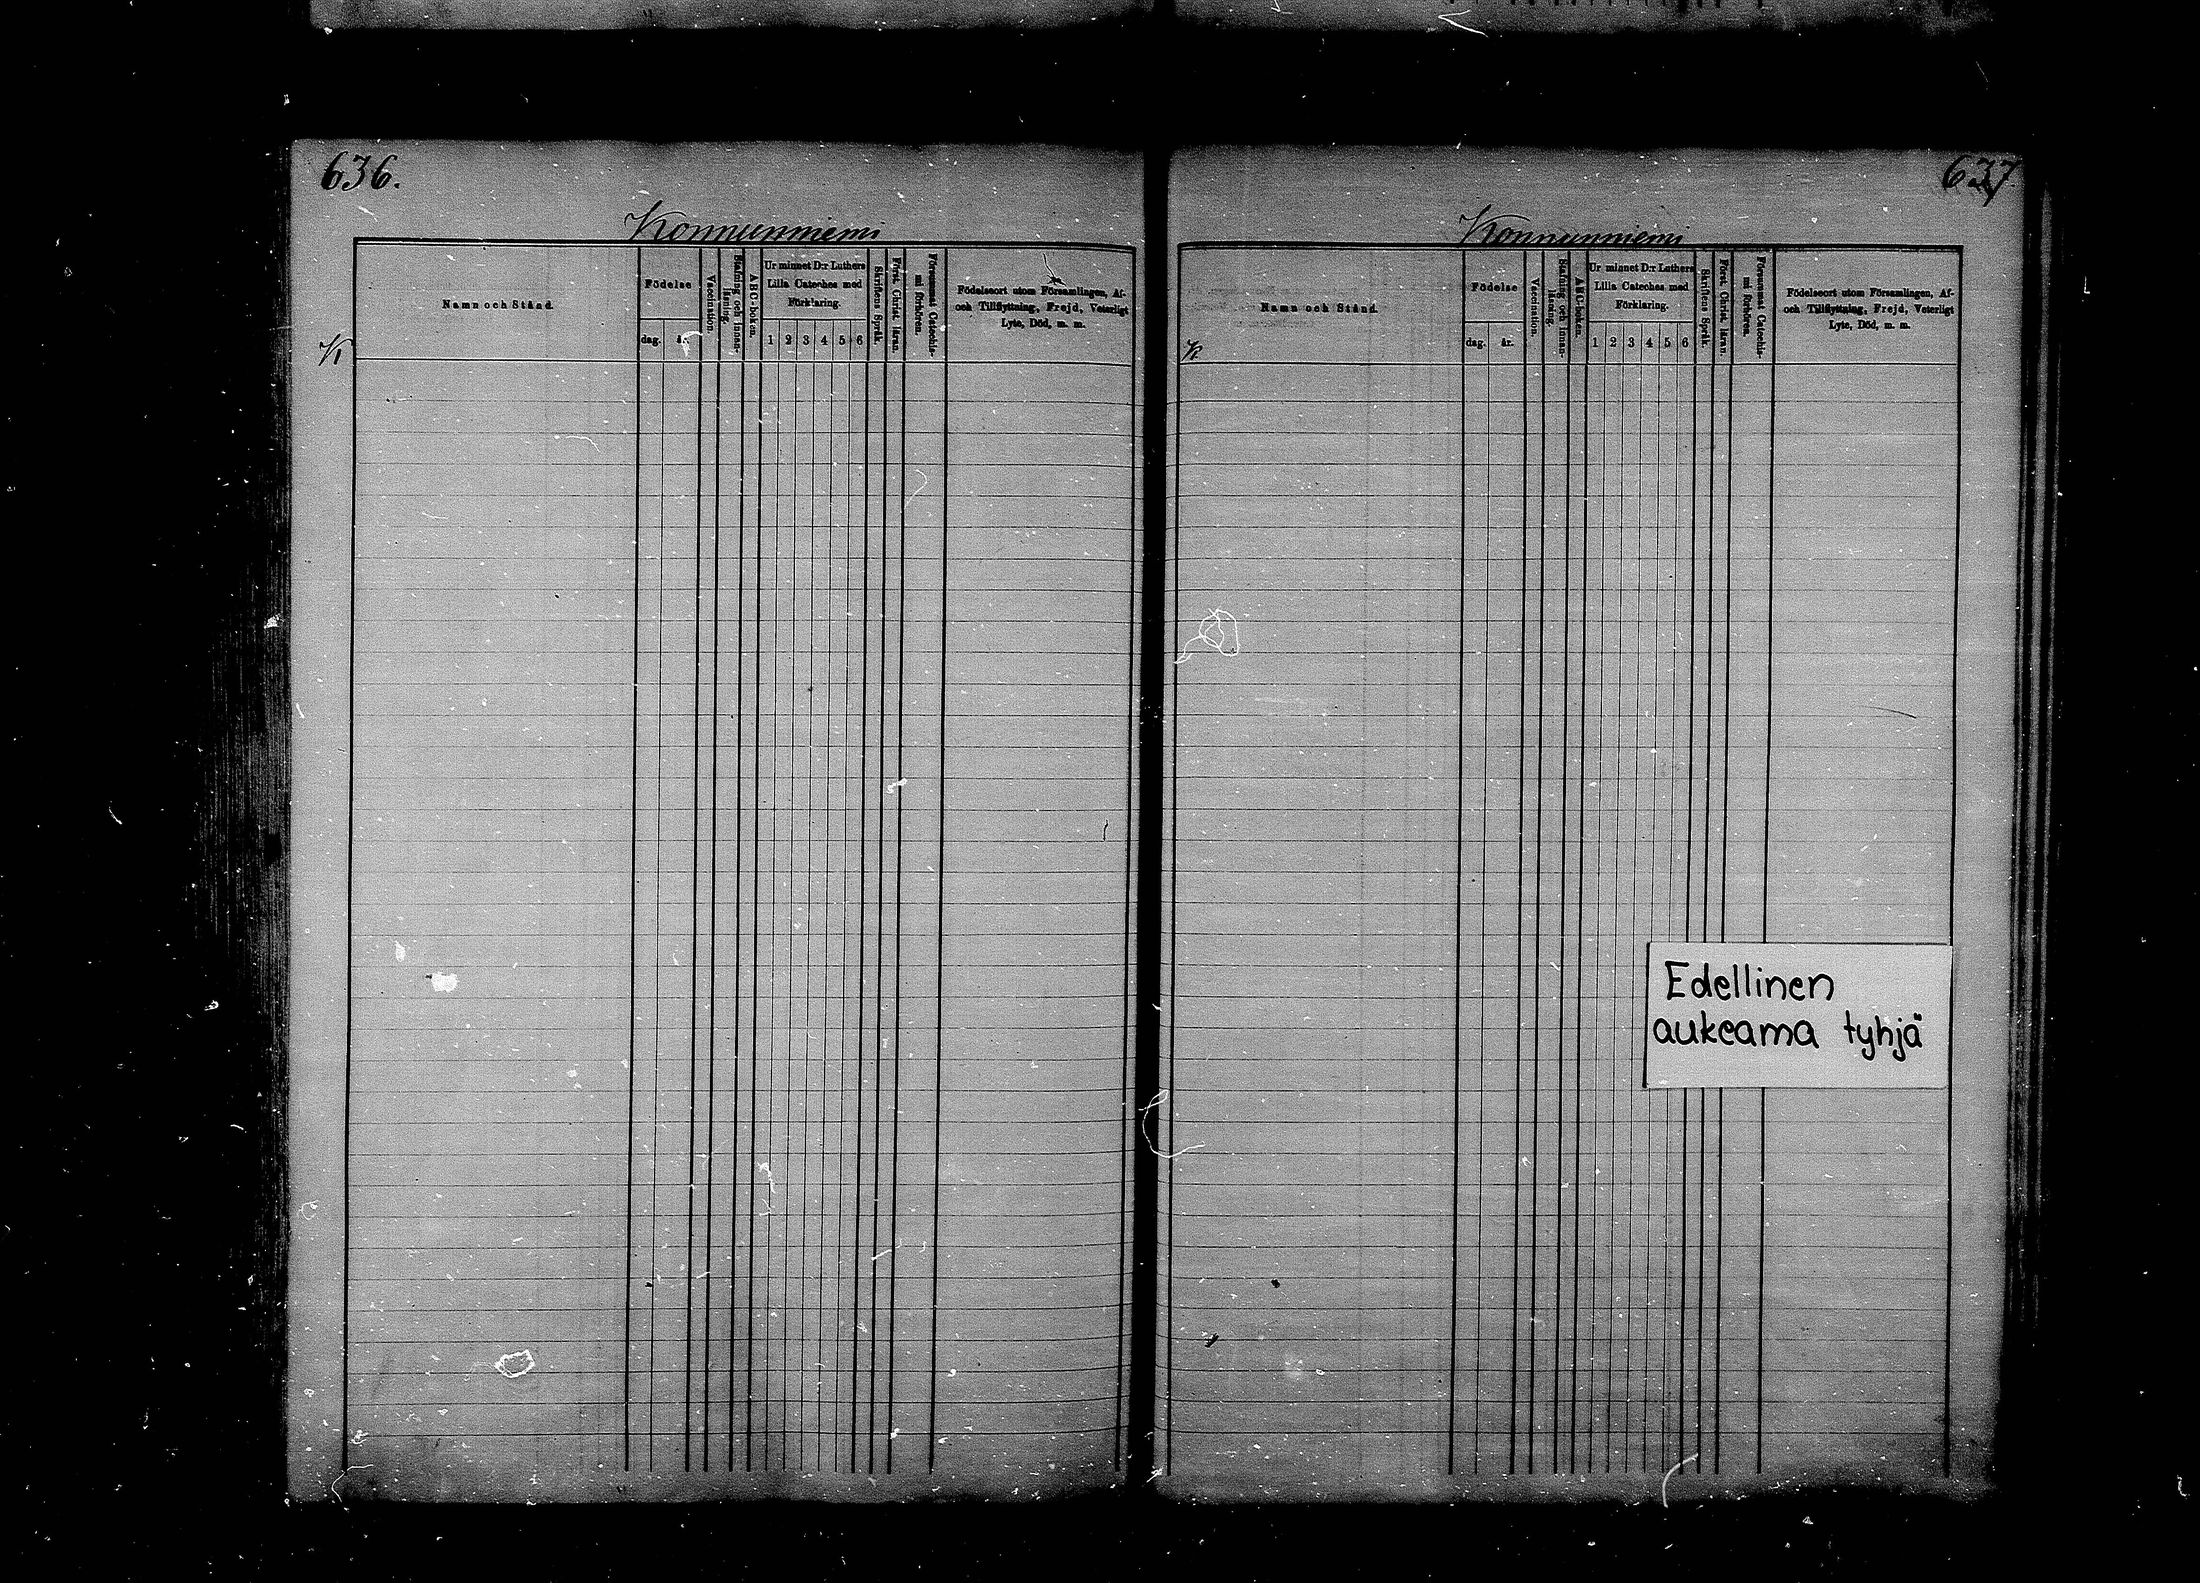 636.
Konnunniemi
Namn och Stånd.
Födelse
dag.
år.
Vaccination.
Stafning och innan-
läsning.
ABC-boken.
Ur minnet D:r Luthers
Lilla Cateches med
Förklaring.
1 2 3 4 5 6
Skriftens Språk.
Först. Christ. läran.
Försummat Catechis-
mi förhören.
Födelseort utom Församlingen, Af-
och Tillflyttning, Frejd, Veterligt
Lyte, Död, m. m.
K
637
Konnunniemi
Namn och Stånd.
Födelse
dag.
år.
Vaccination.
Stafning och innan-
läsning.
ABC-boken.
Ur minnet D:r Luthers
Lilla Cateches med
Förklaring.
1 2 3 4 5 6
Skriftens Språk.
Först. Christ. läran.
Försummat Catechis-
mi förhören.
Födelseort utom Församlingen, Af-
och Tillflyttning, Frejd, Veterligt
Lyte, Död, m. m.
K
Edellinen
aukeama tyhjä